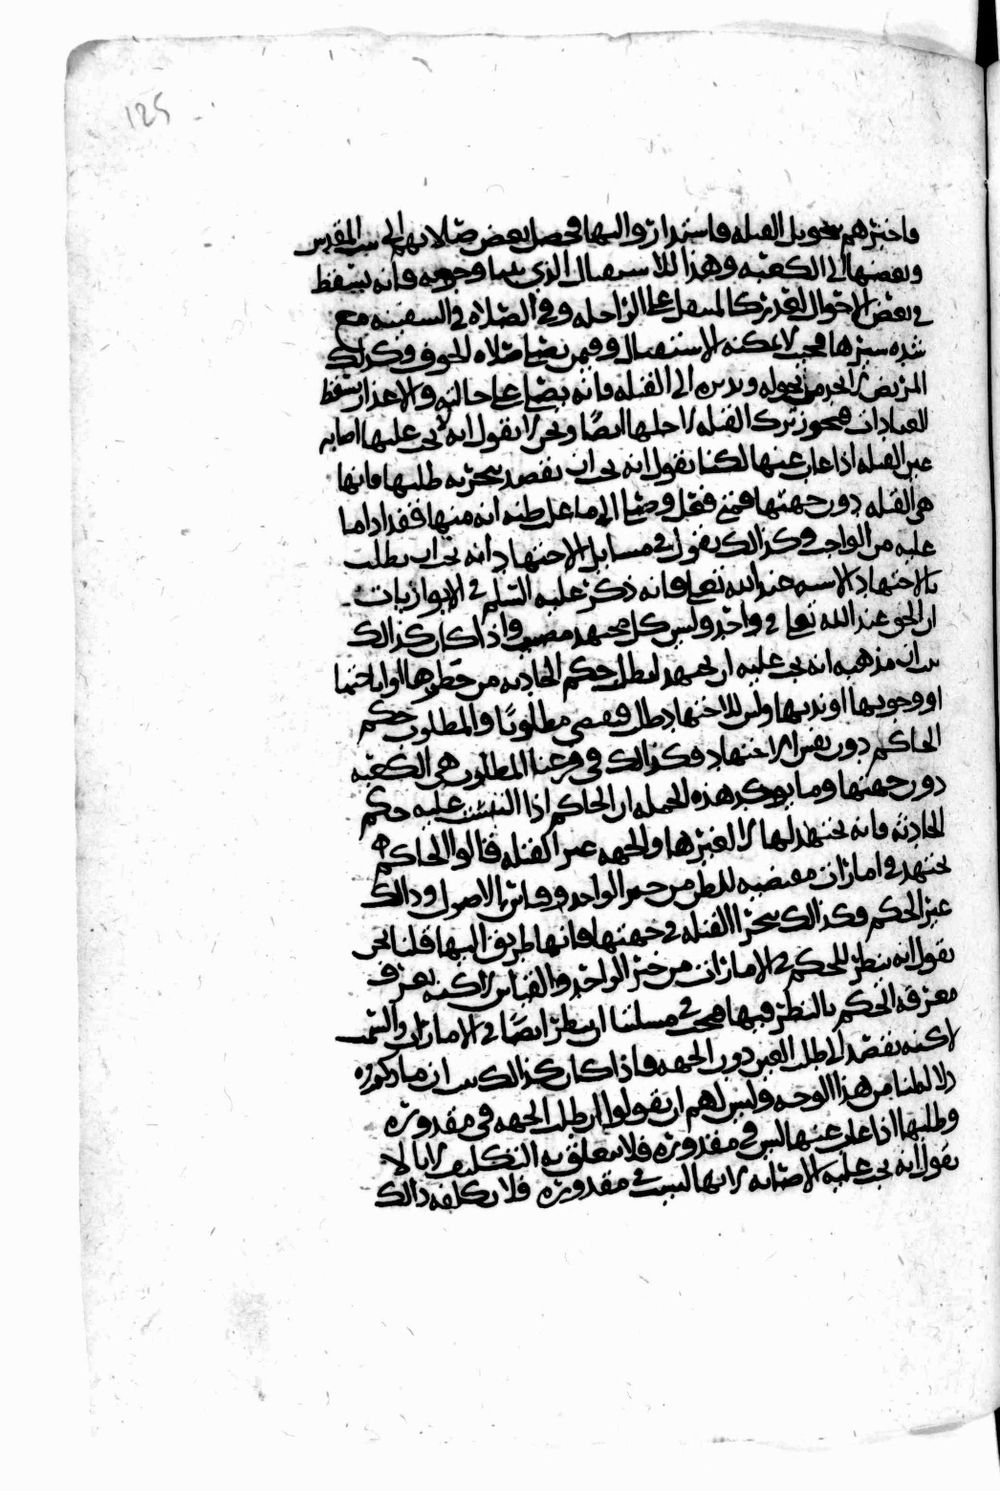 125
فاخبرهم بتحويل القبله فاستداروا اليها فحصل بعض صلاتهم الى بيت المقدس
وبعضها الى الكعبه وهذا للاستقبال الذي بينا وجوبه فانه يسقط
في بعض الاحوال لعذر كالمتنفل على الراحله وفي الصلاه في السفينه مع
شده سيرها بحيث لا يمكنه الاستقبال وفيمن يصلي صلاه الخوف وكذلك
المريض لا يجد من يحوله ويديره الى القبله فانه يصلي على حالته والاعذار تسقط
العبادات فيجوز ترك القبله لاجلها ايضا ونحن لا نقول انه لا يجب عليها اصابه
عين القبله اذا غاب عنها لكنا نقول انه يجب ان يقصد بتحريه طلبها فانها
هي القبله دون جهتها فمتى فعل وصلى الى ما غلب ظنه انه منها فقد ادا ما
عليه من الواجب وكذالك يقول في مسايل الاجتهاد انه يجب ان يطلب
بالاجتهاد الاشبه عند الله تعلى فانه ذكر عليه السلم في الابوازيات
ان الحق عند الله تعلى في واحد وليس كل مجتهد مصيب واذا كان كذالك
بان ان مذهبه انه يجب عليه ان يجتهد لطلب حكم الحادثه من حظرها او اباحتها
او وجوبها او ندبها وليس للاجتهاد طلب فيقتضي مطلوبا والمطلوب حكم
الحاكم دون نفس الاجتهاد فكذالك في فرعنا المطلوب هي الكعبه
دون جهتها ومما يوكد هذه الجمله ان الحاكم اذا التبس عليه حكم
الحادثه فانه يجتهد لها لا لغيرها والجهه غير القبله قالوا الحاكم
يجتهد في امارات مقتضيه للظن من خبر الواحد وقياس بالاصول وذالك
غير الحكم وكذالك يتحرا القبله في جهتها فانها طريق اليها قلنا نحن
نقول انه ينظر للحكم في الامارات من خبر الواحد والقياس لاكنه يعرف
معرفه الحكم بالنظر فيها فيجب في مسلتنا ان ينظر ايضا في الامارات والسمت
لاكنه يقصد الى طلب العين دون الجهه فاذا كان كذالك بان ان ما ذكروه
دلاله لنا من هذا الوجه وليس لهم ان يقولوا ان طلب الجهه في مقدوره
وطلبها اذا غاب عنها ليس في مقدوره فلا يتعلق به التكليف لانا لا
نقول انه يجب عليه الاصابه لانها ليست في مقدوره فلا نكلفه ذالك